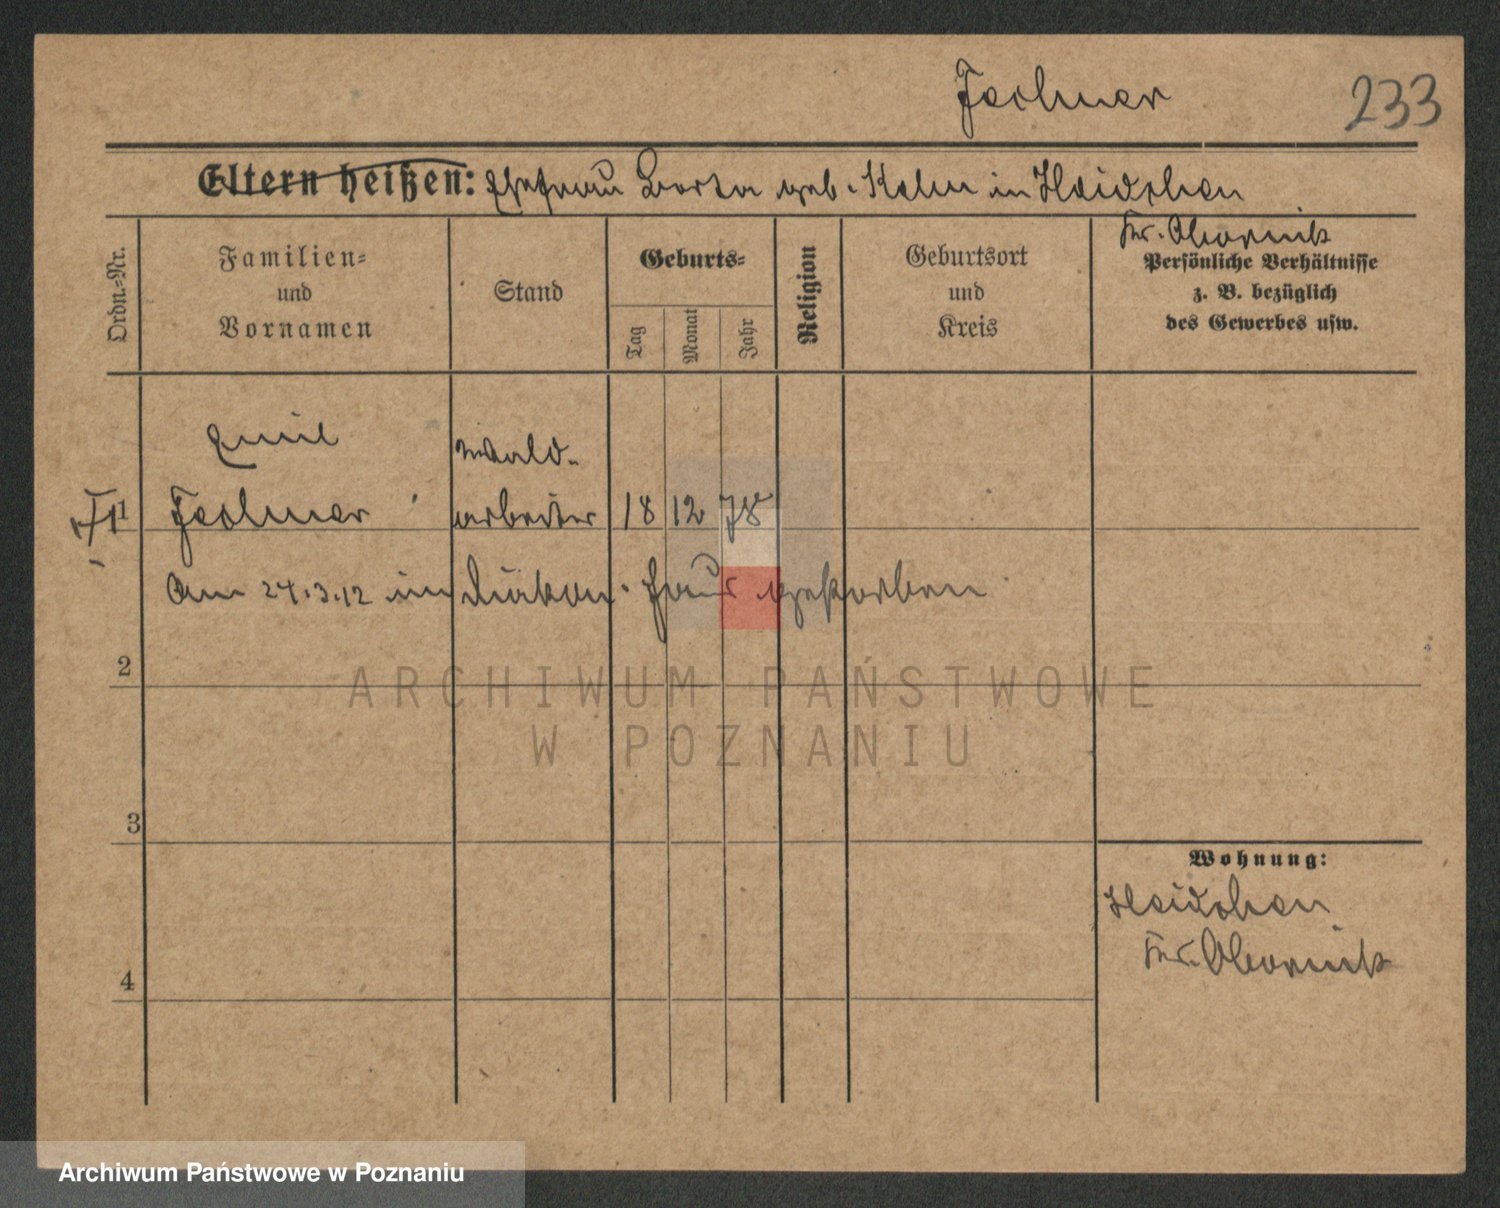 Fechner
233
Eltern heißen: Ehefrau Berta geb. Kelm in Heidchen
Kr. Obornik
Ordn.-Nr.
Familien-
und
Vornamen
Stand
Geburts-
Tag
Monat
Jahr
Religion
Geburtsort
und
Kreis
Persönliche Verhältnisse
z. B. bezüglich
des Gewerbes usw.
Emil
Wald-
1
arbeiter
18 12 78
Am 24.3.12 im Diakon. Haus gestorben
2
ARCHIWUM PAŃSTWOWE
W POZNANIU
3
Wohnung:
Heidchen
Kr. Obornik
4
Archiwum Państwowe w Poznaniu